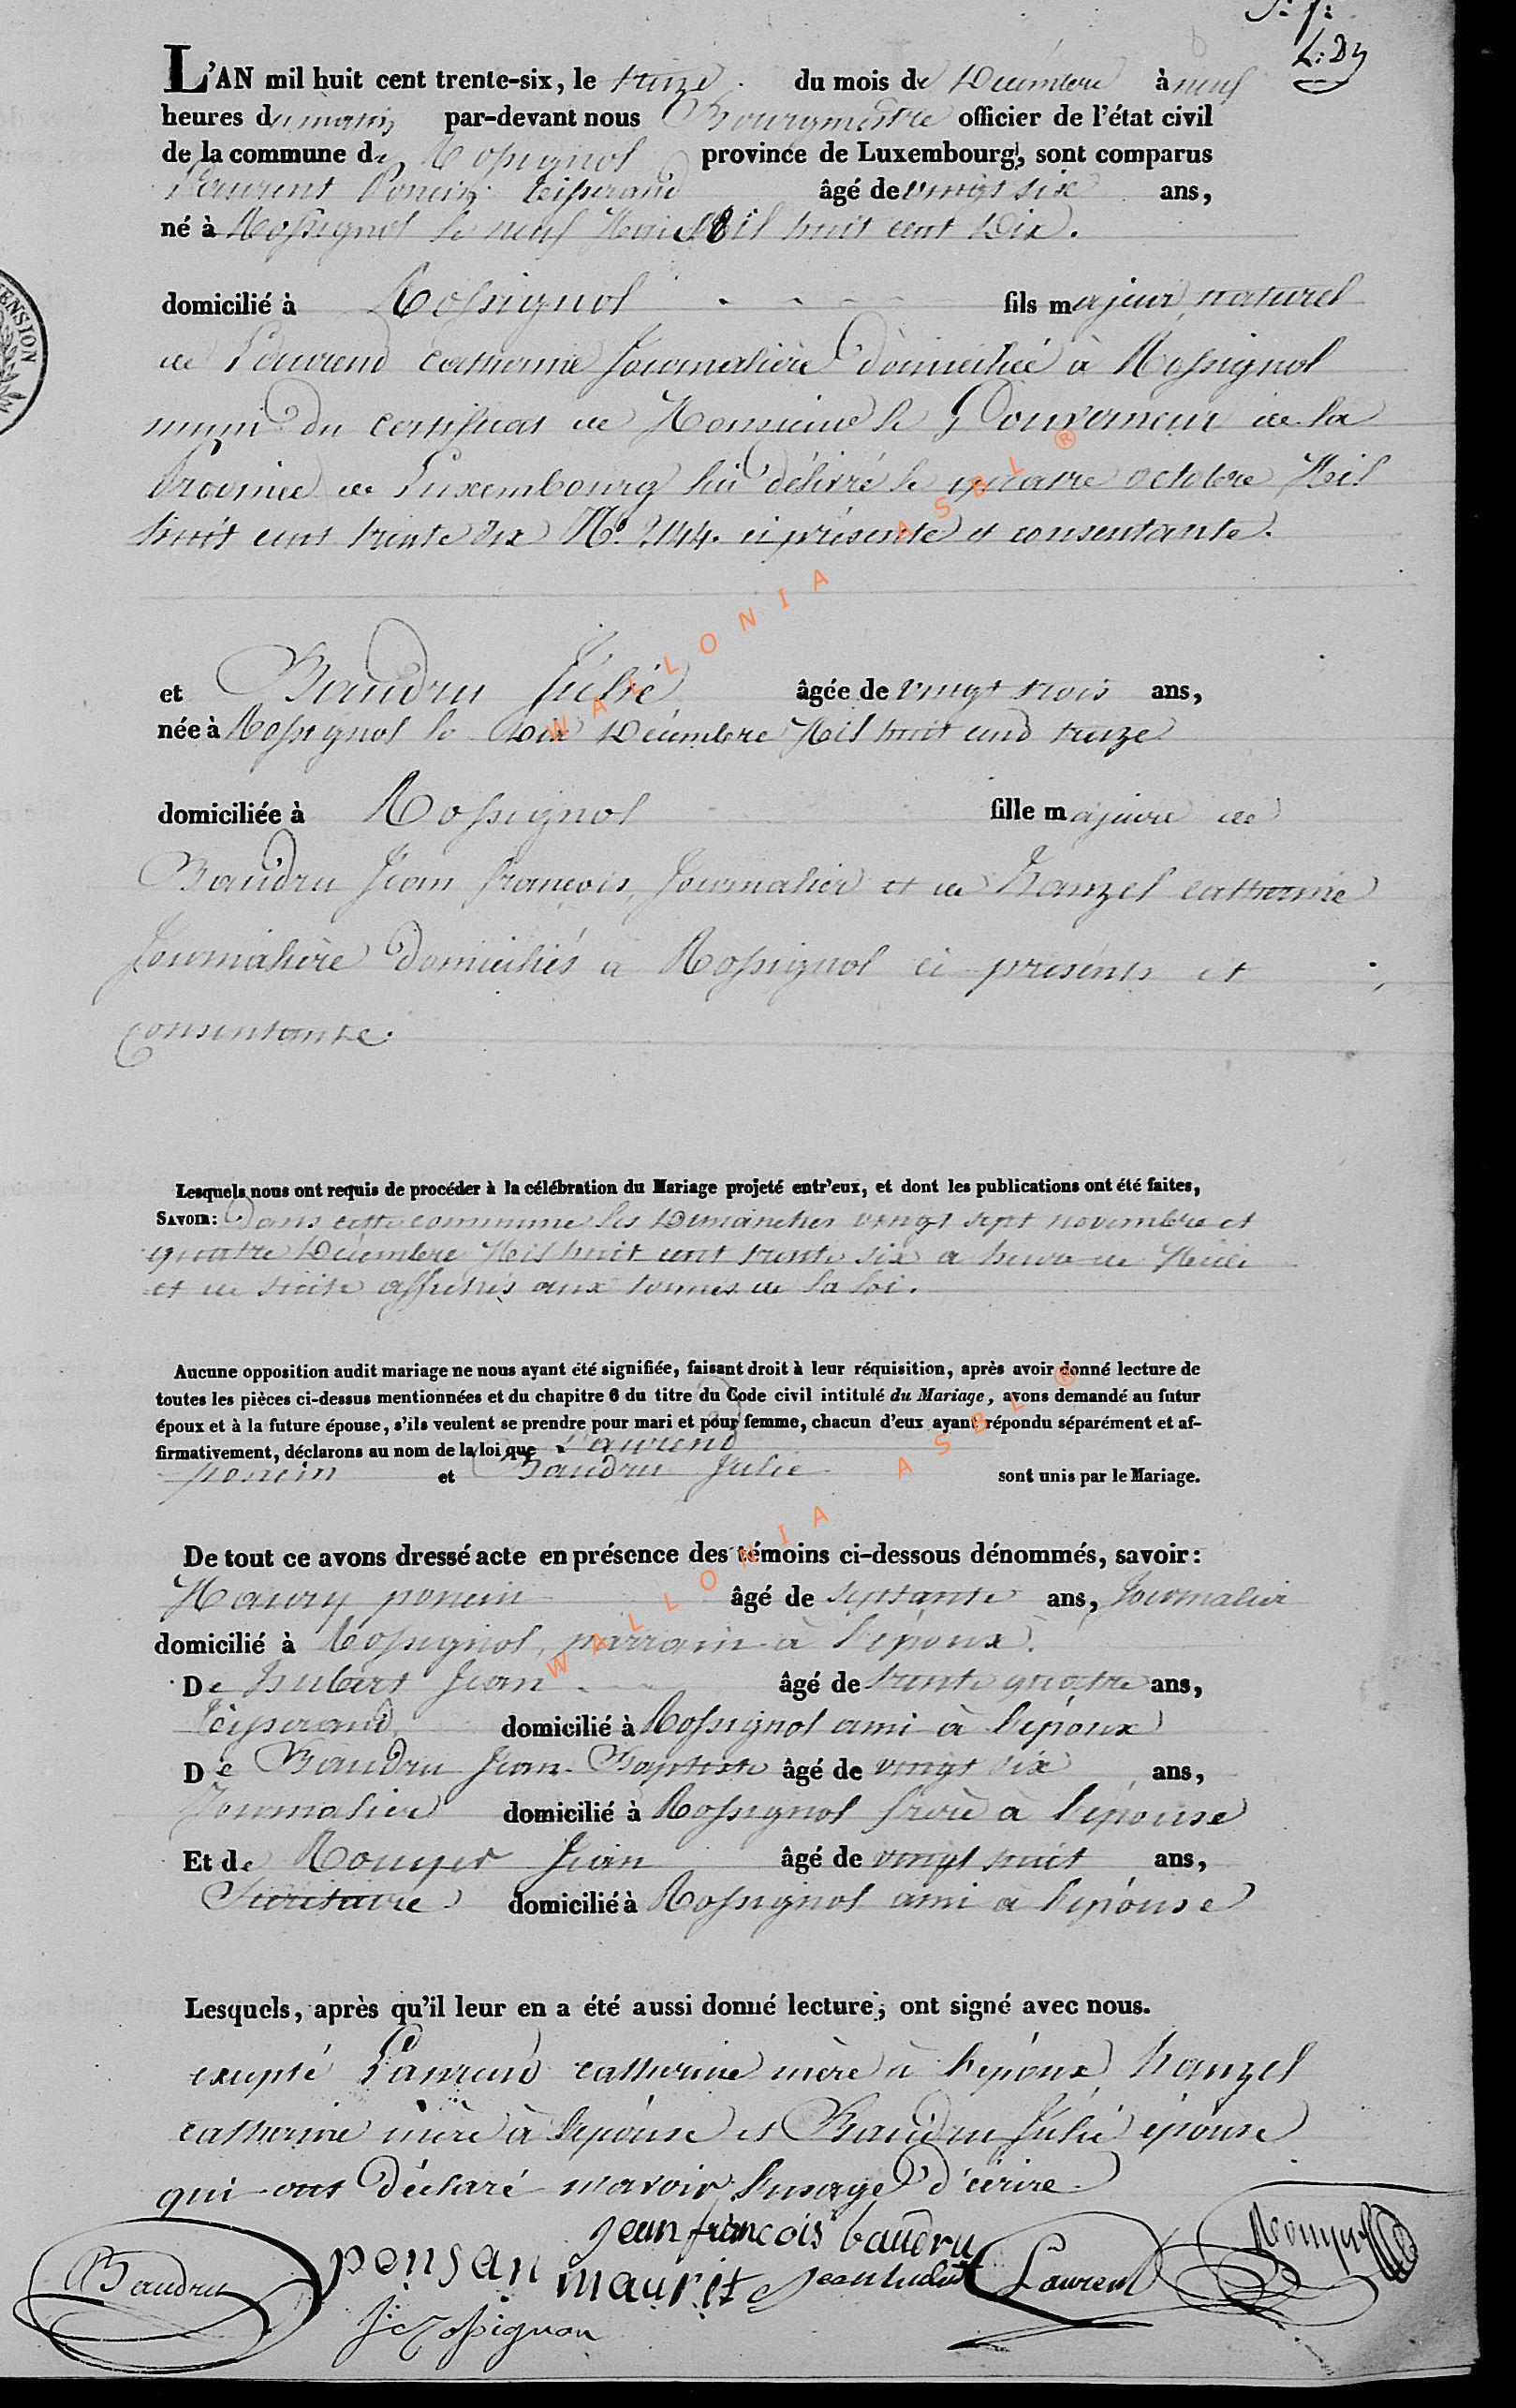 L'AN mil huit cent trente-six, le treize du mois de Décembre à neuf
heures du matin par-devant nous Bourgmestre officier de l'état civil
de la commune de Rossignol province de Luxembourg, sont comparus
Laurent Poncin teisserand âgé de vingt six ans,
né à Rossignol le neuf Mai Mil huit cent Dix.
domicilié à Rossignol fils majeur naturel
de Laurend catherine Journalière domiciliée à Rossignol
muni du certificat de Monsieur le Gouverneur de la
Province de Luxembourg lui délivré le quatre octobre Mil
huit cent trente six N° 2144. ci présente et consentante.
et Baudru Julie âgée de vingt trois ans,
née à Rossignol le Dix Décembre Mil huit cend treize
domiciliée à Rossignol fille majeure de
Baudru Jean françois, Journalier et de hanzel catherine
Journalière domiciliés à Rossignol ci présents et
consentante.
Lesquels nous ont requis de procéder à la célébration du Mariage projeté entr'eux, et dont les publications ont été faites,
SAVOIR: Dans cette commune les Dimanches vingt sept novembre et
quatre Décembre Mil huit cent trente six a heure de Midi
et de suite affichés aux termes de la loi.
Aucune opposition audit mariage ne nous ayant été signifiée, faisant droit à leur réquisition, après avoir donné lecture de
toutes les pièces ci-dessus mentionnées et du chapitre 6 du titre du Code civil intitulé du Mariage, avons demandé au futur
époux et à la future épouse, s'ils veulent se prendre pour mari et pour femme, chacun d'eux ayant répondu séparément et af-
firmativement, déclarons au nom de la loi que Laurend
poncin et Baudru Julie sont unis par le Mariage.
De tout ce avons dressé acte en présence des témoins ci-dessous dénommés, savoir:
Maury poncin âgé de septante ans, Journalier
domicilié à Rossignol, parrain à l'époux.
De hubert Jean âgé de trente quatre ans,
teisserand domicilié à Rossignol ami à l'époux
De Baudru Jean-Baptiste âgé de vingt six ans,
Journalier domicilié à Rossignol frère à l'épouse
Et de Rouyer Jean âgé de vingt huit ans,
Secrétaire domicilié à Rossignol ami à l'épouse
Lesquels, après qu'il leur en a été aussi donné lecture, ont signé avec nous.
excepté Laurend catherine mère à l'époux, hanzel
catherine mère à l'épouse et Baudru Julie épouse
qui ont déclaré n'avoir l'usage d'écrire.
Baudru ponsan maurit jean françois baudru Jean hubert Laurent Rouyer
WALLONIA ASBL ®
WALLONIA ASBL ®